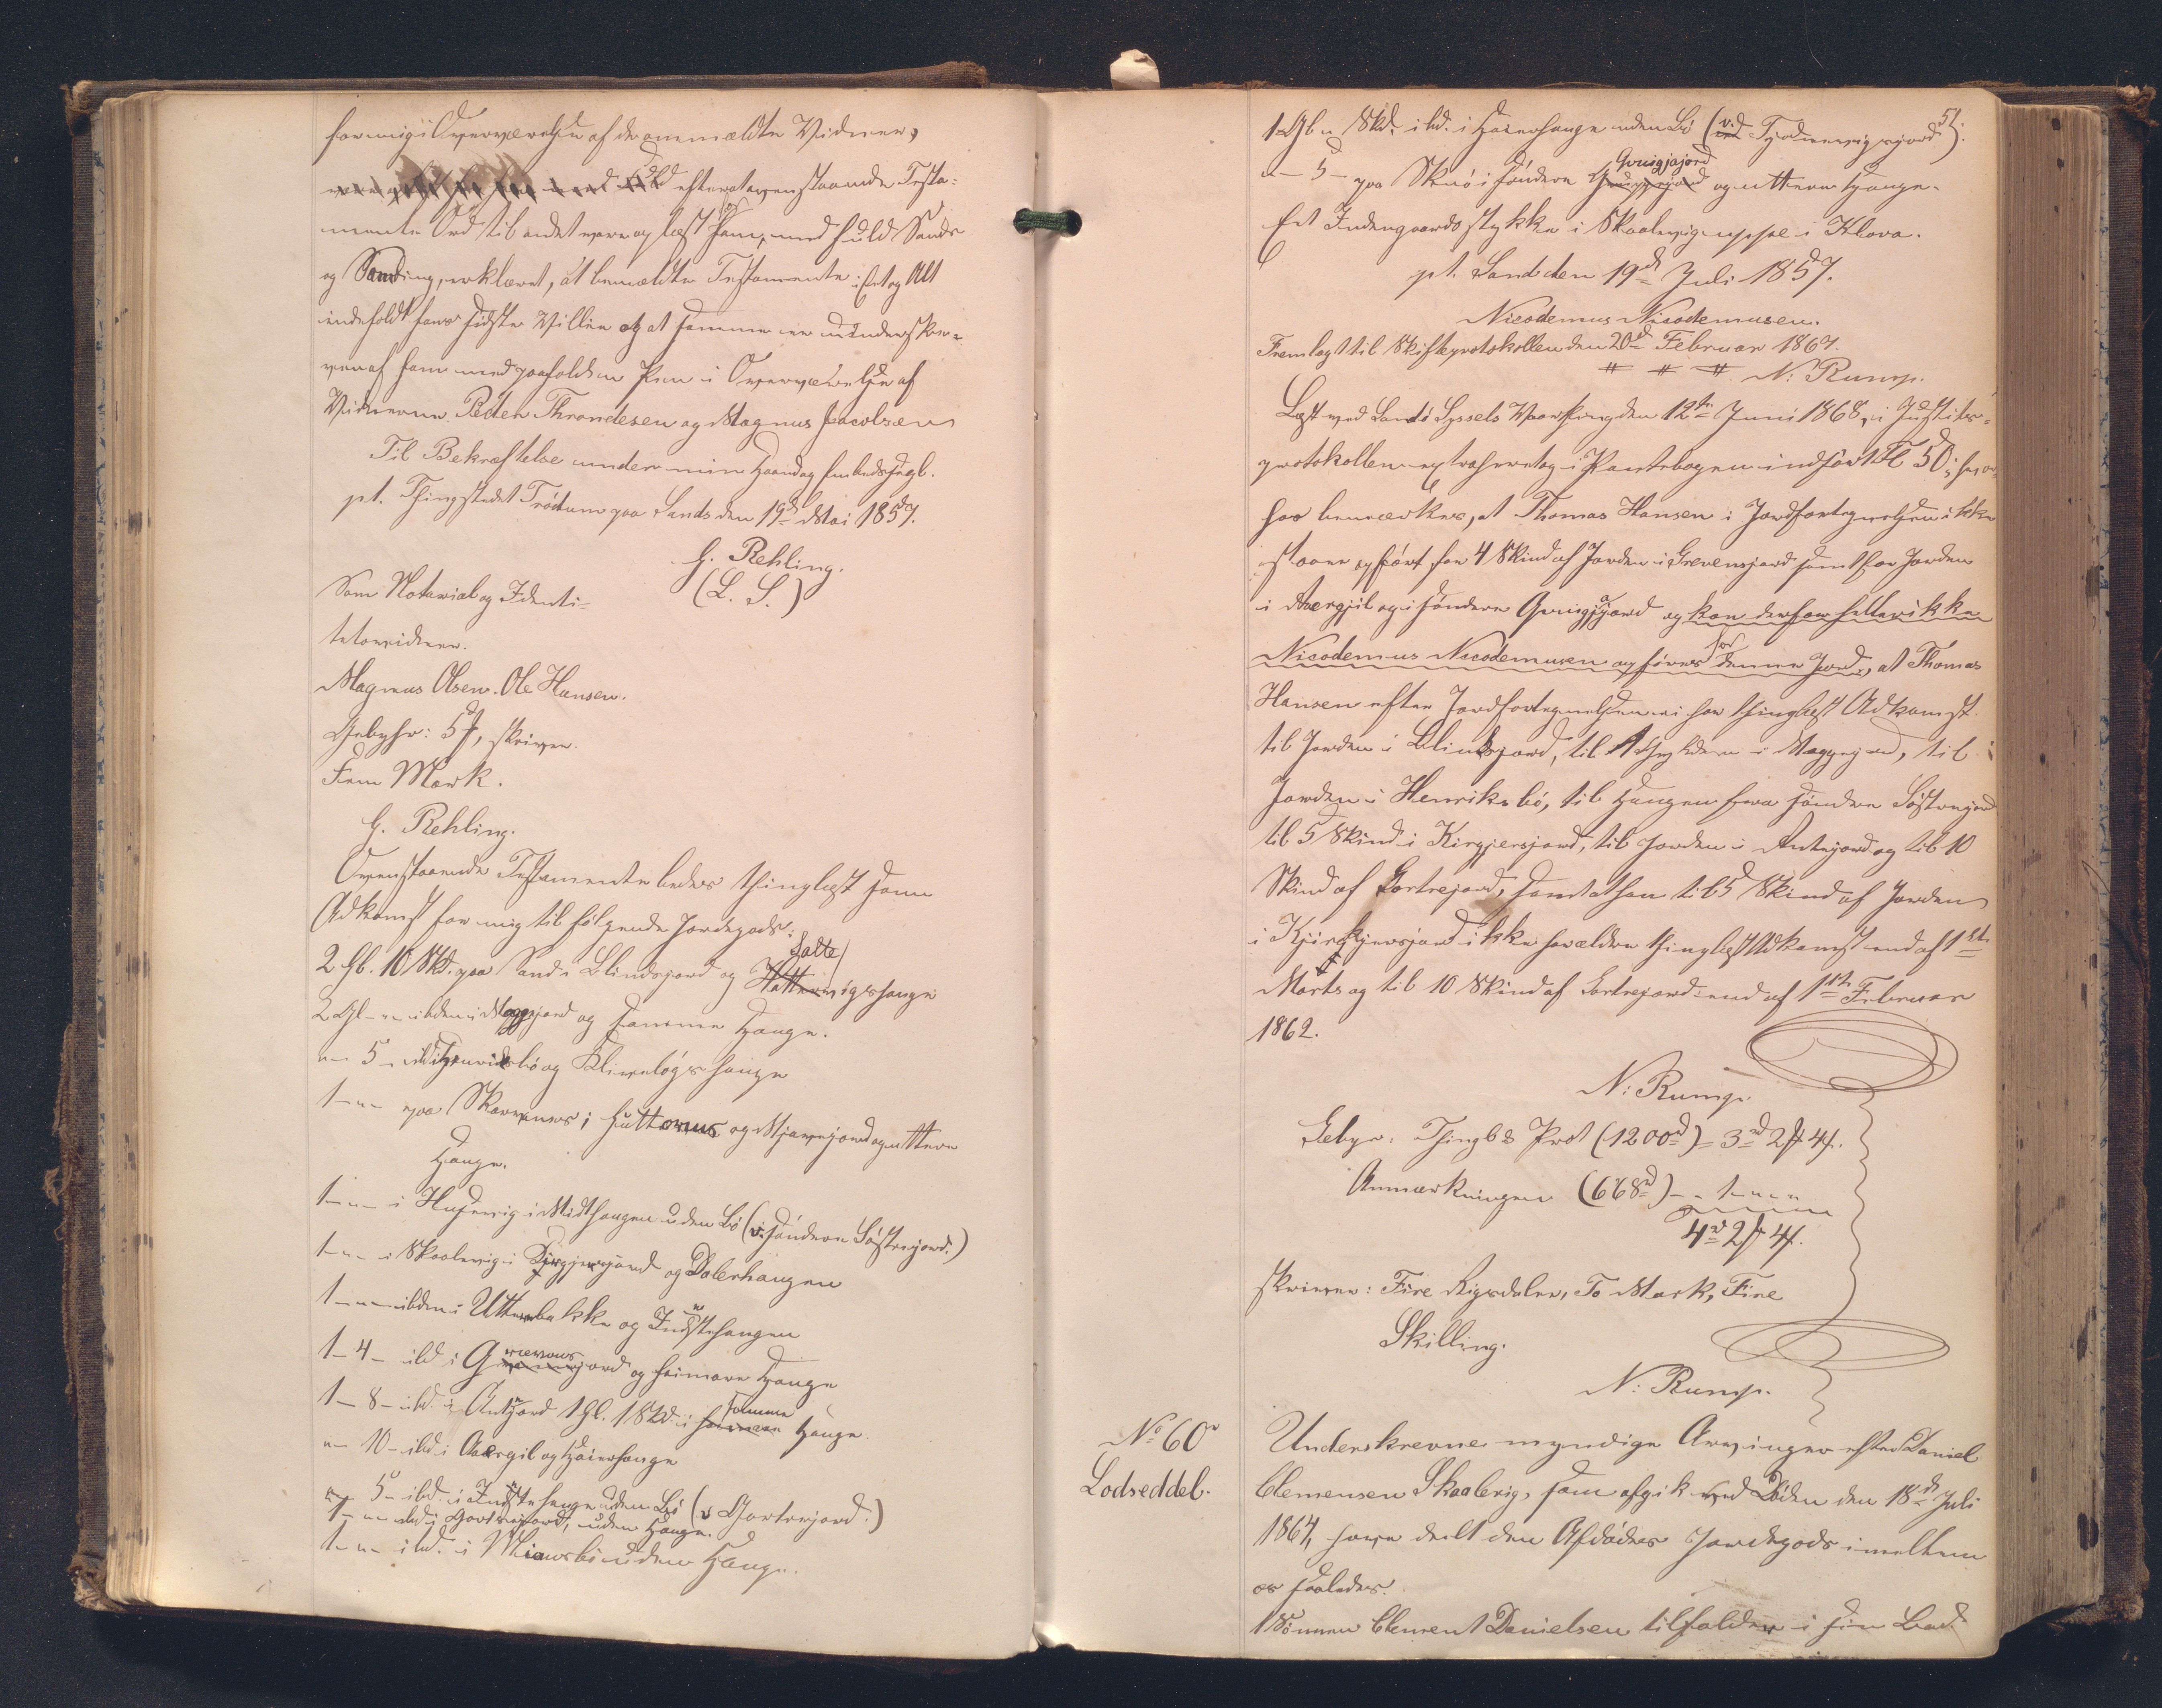 for mig i Overværelse af de anmældte Vidner,
efter at ovenstaaende Testa-
mente Ord til andet vare oplæst for ham, med fuld Sands
og Samling, erklæret, at bemældte Testamente i Et og Alt
indeholdt hans sidste Villie og at samme er underskre-
ven af ham med paaholden Pen i Overværelse af
Vidnerne Peder Throndesen og Magnus Jacobsen
Til Bekræftelse under min Haand og Embedssegl.
pt. Thingstedet Trödum paa Sandö den 19de Mai 1857.
H. Rehling.
(L. S.)
Som Notarial og Identi-
tetsvidner.
Magnus Olsen. Ole Hansen.
Gebyhr: 5 ₻, skriver
Fem Mark.
H. Rehling.
Ovenstaaende Testamente bedes thinglæst som
Adkomst for mig til følgende Jordegods:
2 Gl. 10 Skd. paa Sand i Blindsjord og Salte
vigshauge
2 Gl - " - ibden i Maggejord og samme Hauge.
" - 5 - og Klivelögs hauge
1 - " - paa Skarvenes i og Mjavejord og uttere
Hauge.
1 - " - i Husevig i Midthaugen uden Bö (v. söndere Söstrejord.)
1 - " - i Skaalevig i Kirgjersjord og Dalerhaugen
1 - " - ibden i Utterbakke og Indstehaugen
1 - 4 - ibd i Grævens jord og heimare Hauge
1 - 8 - ibd. i Antjord 1 Gl. 1 Skd. i samme Hauge.
" - 10 - ibd i Aaergil og Haierhauge
" - 5 - ibd. i Indstehauge uden Bö (v Gortrejord.)
1 - " - ibd i Gortrejord, uden Hauge.
1 - " - ibd. i Miavrbö uden Hauge.
51.
1 Gl " Skd. ibd. i Haierhauge uden Bö (v.
" - 5 - paa Skuö i söndere Gruigjajord og uttere Hauge.
Et Indengaardsstykke i Skaalevig uppe i Klova.
pt. Sand den 19de Juli 1857.
Nicodemus Nicodemusen.
Fremlagt til Skifteprotokollen den 20de Februar 1867.
N: Rump.
Læst ved Sandö Syssels Vaarthing den 12te Juni 1868, i Justits-
protokollen extraheret og i Pantebogen indført Fl 50;
hos bemærkes, at Thomas Hansen i Jordfortegnelsen ikke
staar opført for 4 Skind af Jorden i Grevensjord samt for Jorden
i Aaergjil og i söndere Gruigjajord og kan derfor heller ikke
Nicodemus Nicodemusen opføres for denne Jord, at Thomas
Hansen efter Jordfortegnelsen ei har thinglæst Adkomst
til Jorden i Blindsjord, til i Maggejord, til
Jorden i Henriksbö, til Haugen fra söndere Söstrejord
til 5 Skind i Kirgjersjord, til Jorden i Antejord og til 10
Skind af Gortrejord, samt at han til 5 Skind af Jorden
i Kjirkjersjord ikke har ældre thinglæst Adkomst end af 1ste
Marts og til 10 Skind af Gortrejord end af 1ste Februar
1862.
N: Rump.
Gebyr: Thingl & Prot (1200rd) = 3rd 2₻ 4ß.
Anmærkningen (668rd) - " 1 - " - "
4rd 2₻ 4ß.
skriver: Fire Rigsdaler, To Mark, Fire
Skilling.
N: Rump.
No 60
Lodseddel.
Underskrevne myndige Arvinger efter Daniel
Clemensen Skaalevig, som afgik ved Döden den 18de Juli
1864, have deelt den Afdödes Jordegods imellem
os saaledes.
1 Sönnen Clement Danielsen tilfalder i sin Lod